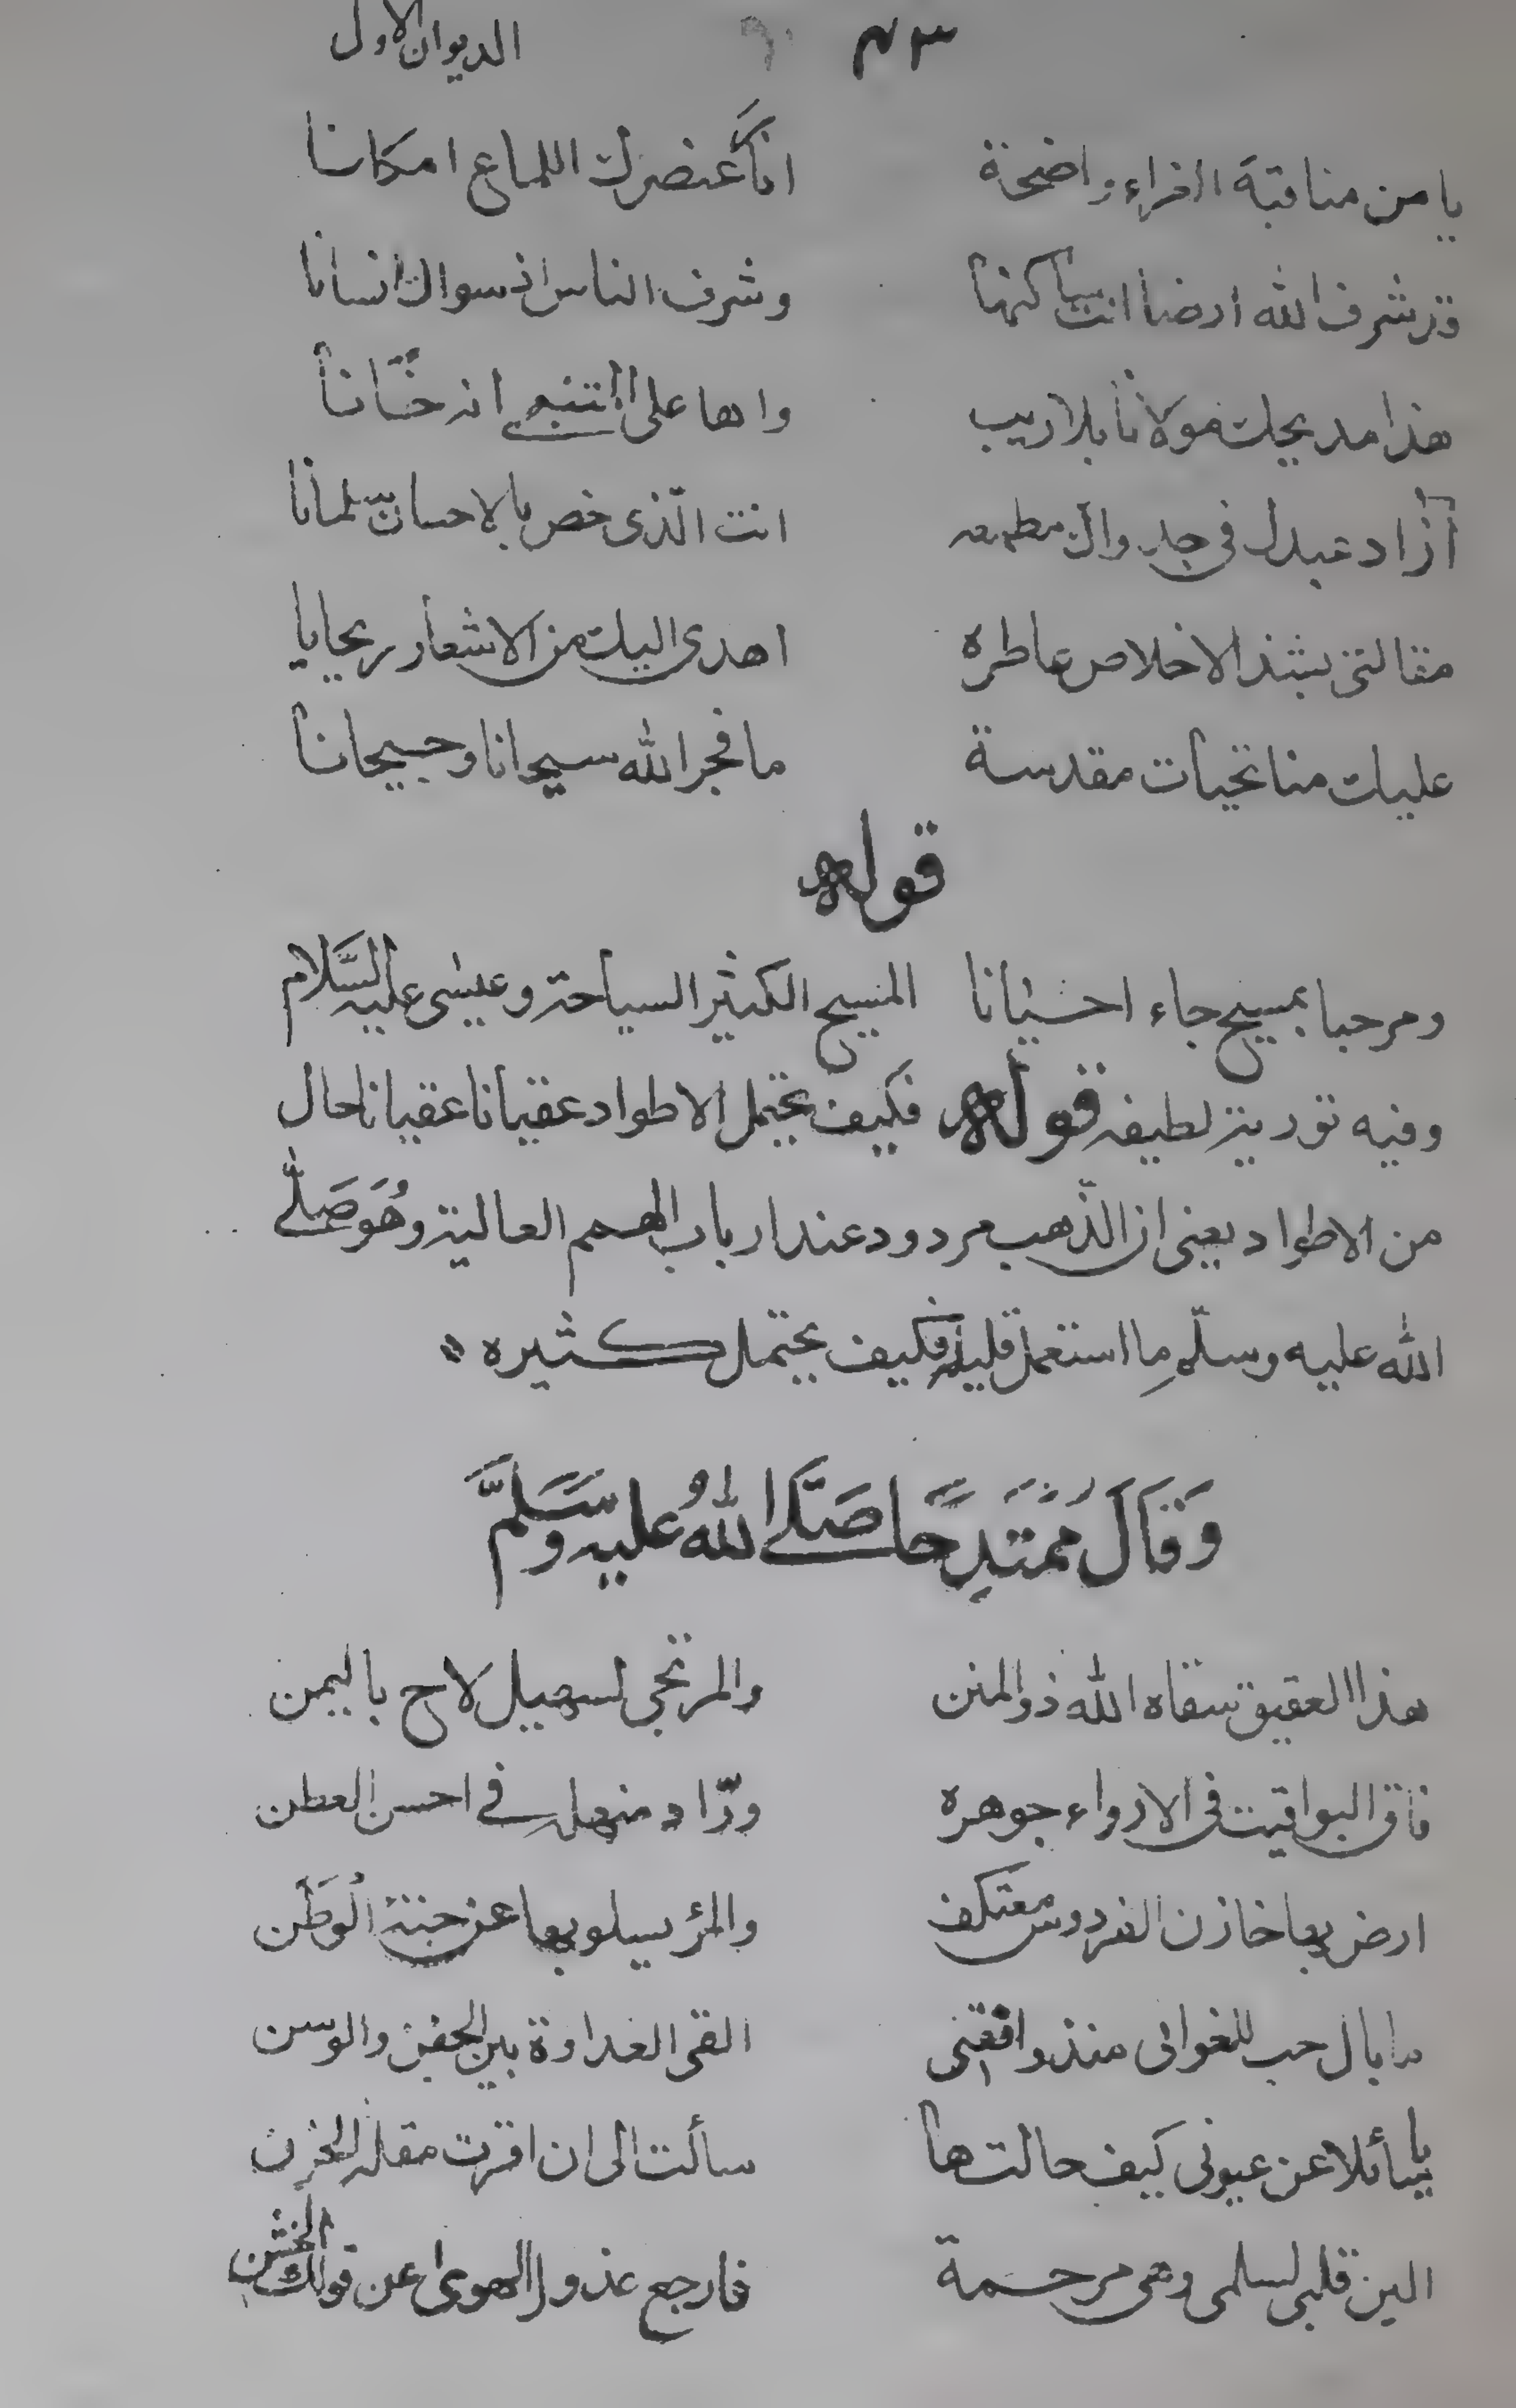 الديوان الاول ٤٣
يا من مناقبة الغراء واضحة انا كعنصرك اللماع امكانا
قد شرف الله ارضا انت ساكنها وشرف الناس اذ سواك انسانا
هذا مديحك مولانا بلا ريب واها على انه حسانا
آزاد عبدك في جدواك مطمعه انت الذي خص بالاحسان سلمانا
مقالتي بشذ الاخلاص عاطره اهدى اليك من الاشعار ريحانا
عليك منا تحيات مقدسة ما فجر الله سيحانا وجيحانا
قوله
ومرحبا بمسيح جاء احيانا المسيح الكثير السياحة وعيسى عليه السَّلام
وفيه تورية لطيفة قوله فكيف تحتمل الاطواد عقيانا عقيانا حال
من الاطواد يعنى ان الذّهب مردود عند ارباب الهمم العالية وهُوَ صَلَّى
الله عليه وسلّم ما استعمل قليله فكيف يحتمل كثيره
وَقَالَ مُمْتَدِحًا صَلَّى اللهُ عليه وسَلَّمَ
هذا العقيق سقاه الله ذو المنن والمرتجى لسهيل لاح باليمن
فاق اليواقيت فى الارواء جوهره ورّاد منهله في احسن العطن
ارض بها خازن الفردوس معتكف والمرؤ يسلو بها عن جنة الوَطَن
ما بال حب للغوانى منذ وافقنى القى العداوة بين الجفن والوسن
يا سائلا عن عيونى كيف حالتها سألت الى ان اقرت مقلة الحزن
الين قلبى لسلمى وهى مرحمة فارجع عذول الهوى عن قولك الخشن